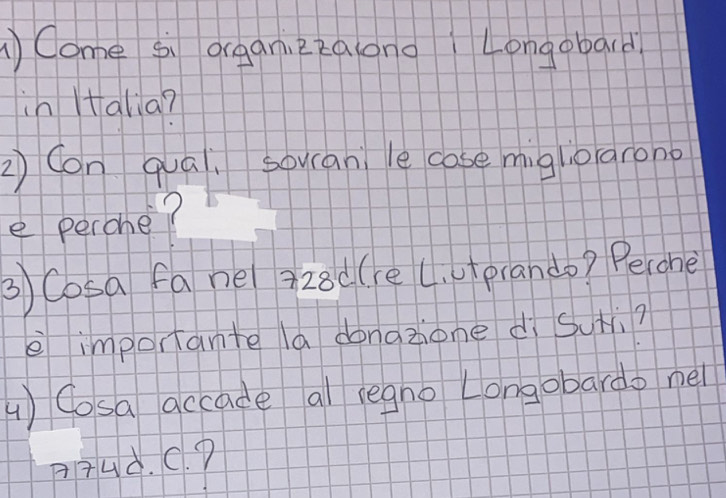 1) Come si organizzarono i Longobardi
in Italia?
2) Con quali sovrani le cose migliorarono
e perché?
3) Cosa fa nel 728d(re Liutprando? Perché
è importante la donazione di Sutri?
4) Cosa accade al regno Longobardo nel
774d.C.?